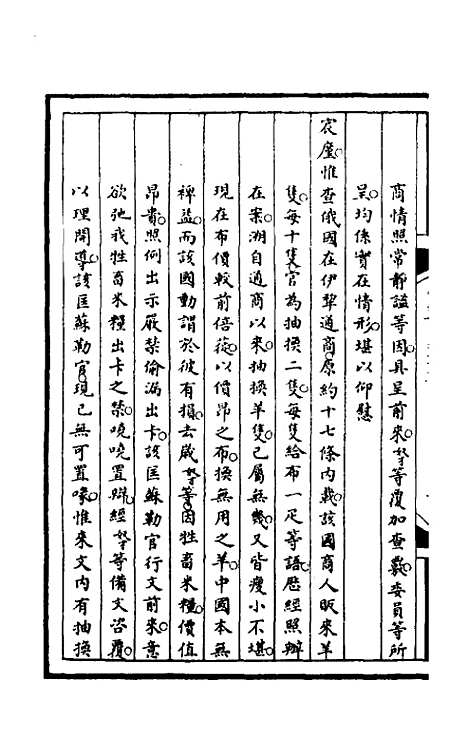 商情照常靜謐等因具呈前來奴才等覆加查覈委員等所
呈均係實在情形堪以仰慰
宸廑惟查俄國在伊犂通商原約十七條內載該國商人販來羊
隻每十隻官為抽換二隻每隻給布一疋等語歷經照辦
在案溯自通商以來抽換羊隻已屬無幾又皆瘦小不堪
現在布價較前倍蓰以價昂之布換無用之羊中國本無
裨益而該國動謂於彼有損去歲奴才等因牲畜米糧價值
昂貴照例出示嚴禁偷漏出卡該匡蘇勒官行文前來意
欲弛我牲畜米糧出卡之禁嘵嘵置辯經奴才等備文咨覆
以理開導該匡蘇勒官現已無可置喙惟來文內有抽換